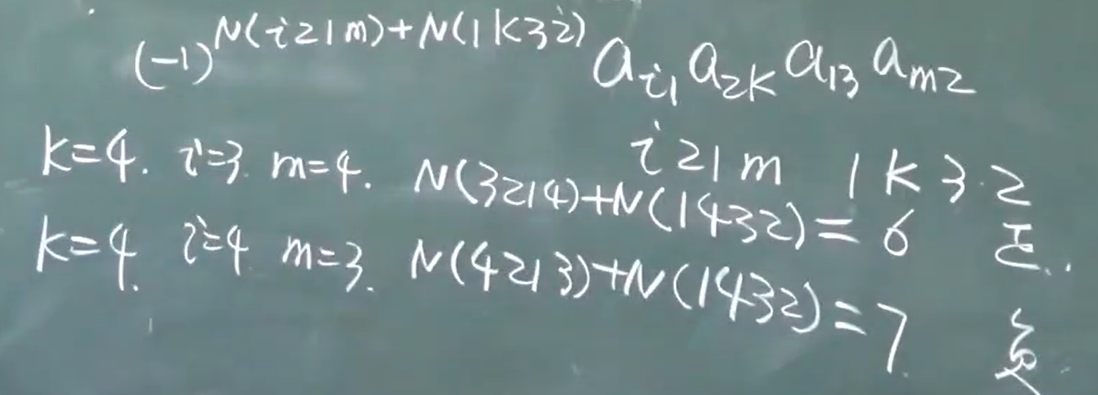 (-1)^{N(i21m)+N(1k32)} a_{i1} a_{2k} a_{13} a_{m2}
i21m 1k32
k=4. i=3 m=4. N(3214)+N(1432)=6 正..
k=4. i=4 m=3. N(4213)+N(1432)=7. 负